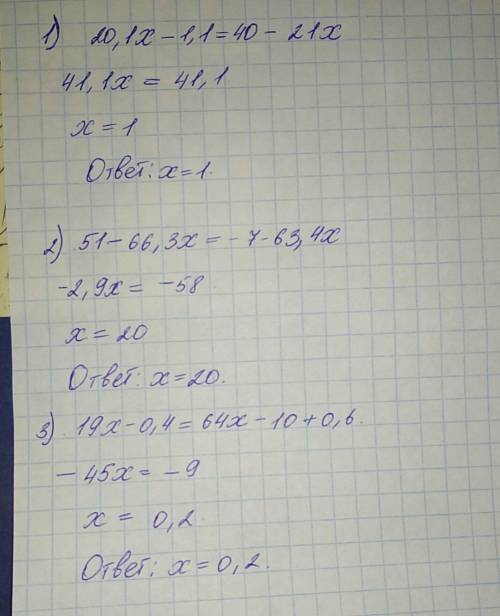 1) 20,1x - 1,1 = 40 - 21x
41,1x = 41,1
x = 1
Ответ: x = 1.
2) 51 - 66,3x = - 7 - 63,4x
-2,9x = -58
x = 20
Ответ: x = 20.
3) 19x - 0,4 = 64x - 10 + 0,6.
- 45x = - 9
x = 0,2.
Ответ: x = 0,2.